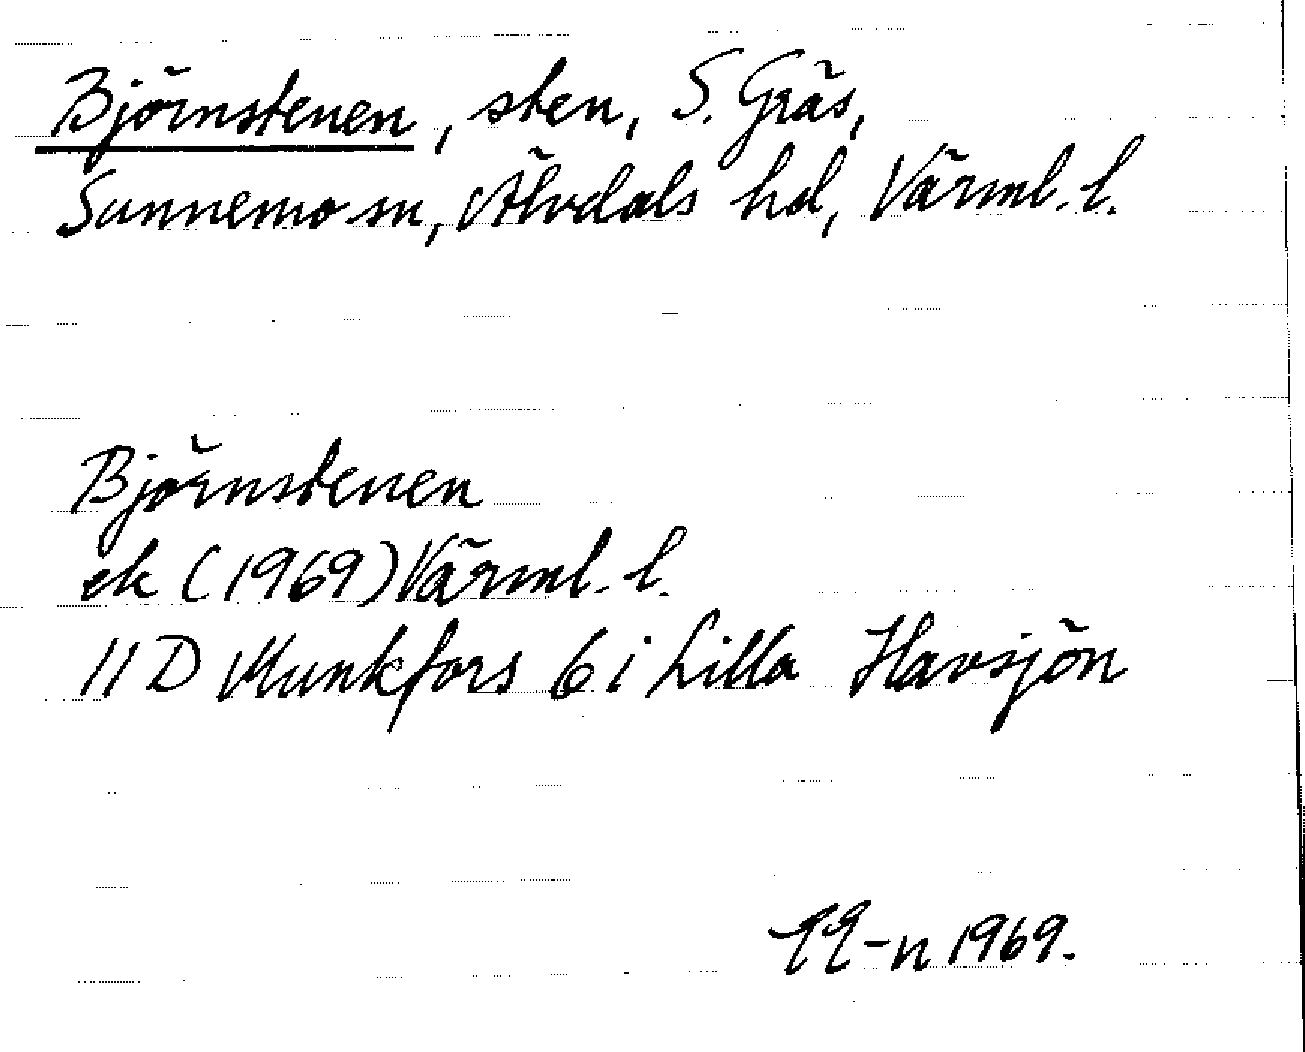 Björnstenen, sten, S. Gräs,
Sunnemo sn, Älvdals hd, Värml. l.
Björnstenen
ek (1969) Värml. l.
11 D Munkfors 6 i Lilla Havsjön
1969.